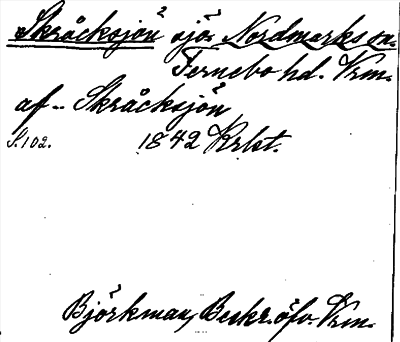 Skråcksjön sjö. Nordmarks sn.
Fernebo hd. Vrm.
af.. Skråcksjön
S.102. 1842 Krlst.
Björkman, Beskr. öfv. Vrm.